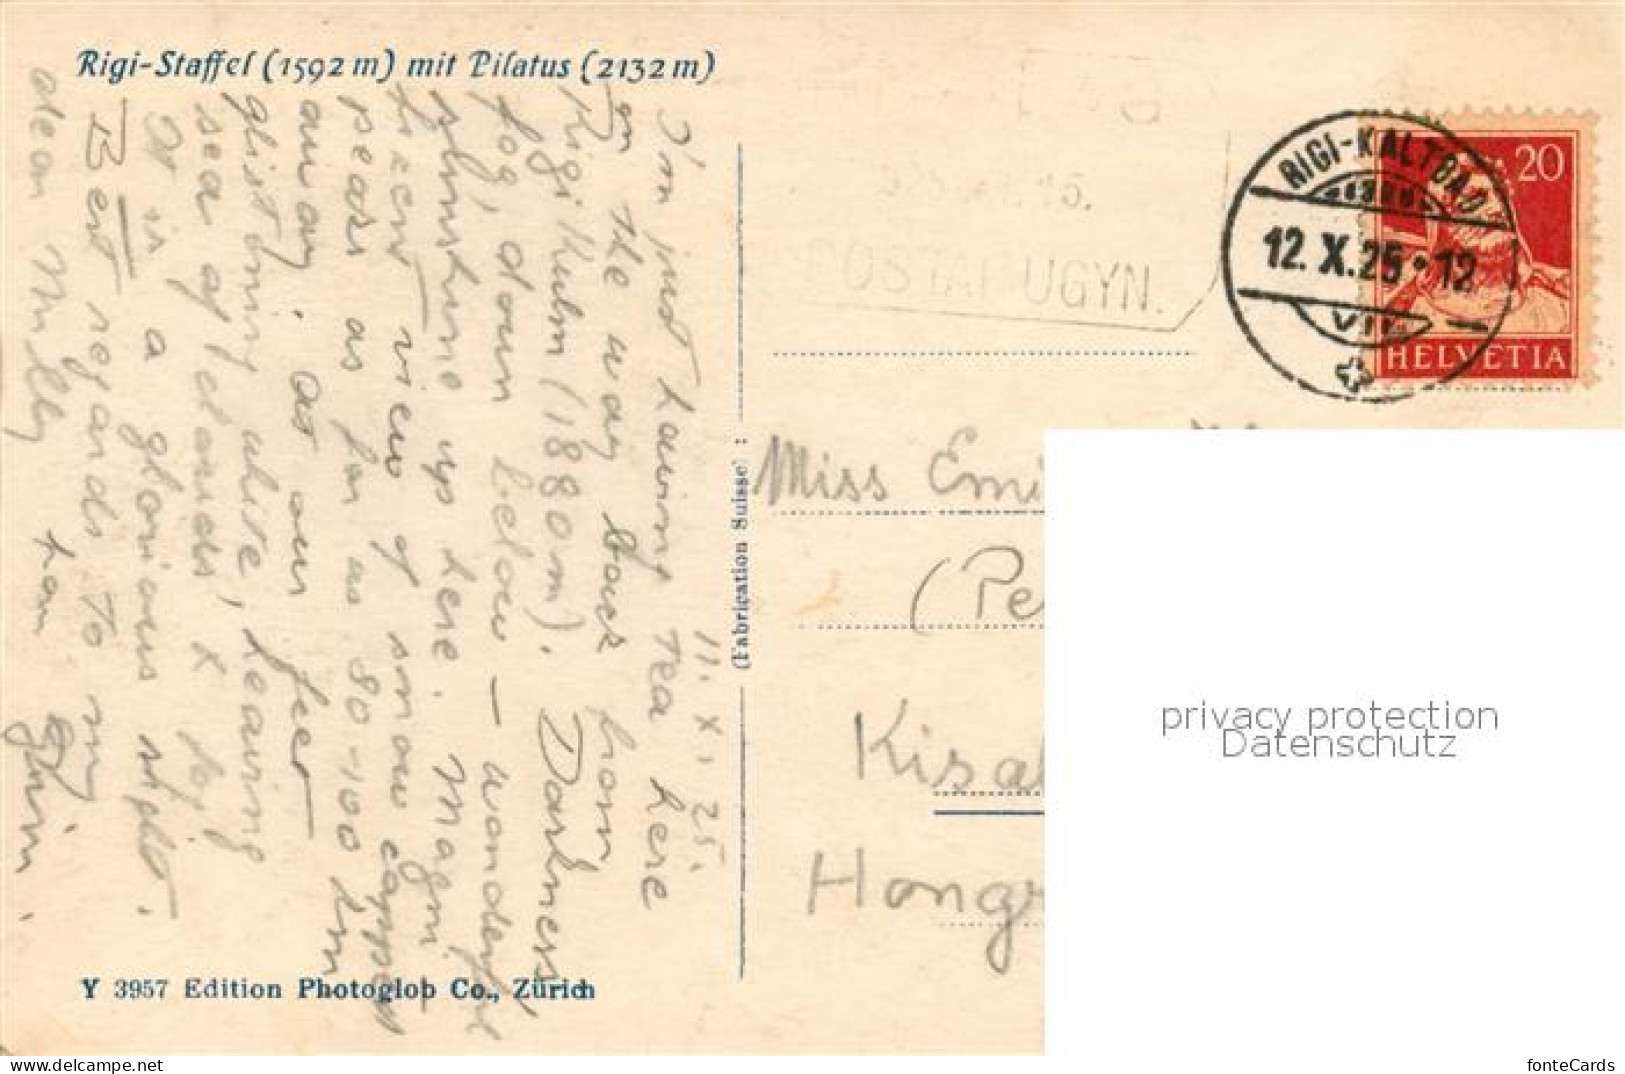 Rigi-Staffel (1592 m) mit Pilatus (2132 m)
11. X. 25.
I'm just having tea here
on the way back from
Rigi Kulm (1880 m). Darkness,
fog, down below — wonderful
sunshine up here. Magni-
ficent view of snow capped
peaks as far as 80-100 km
away; at our feet
glistening white, heaving
sea of clouds & fog!
It is a glorious sight.
Best regards to my
dear Milly
from
(Fabrication Suisse)
Y 3957 Edition Photoglob Co., Zürich
POSTAI UGYN.
RIGI-KALTBAD
12. X. 25 • 12
VII
20
HELVETIA
Miss Emi
(Pe
Kisa
Hong
privacy protection
Datenschutz
fonteCards
delcampe.net